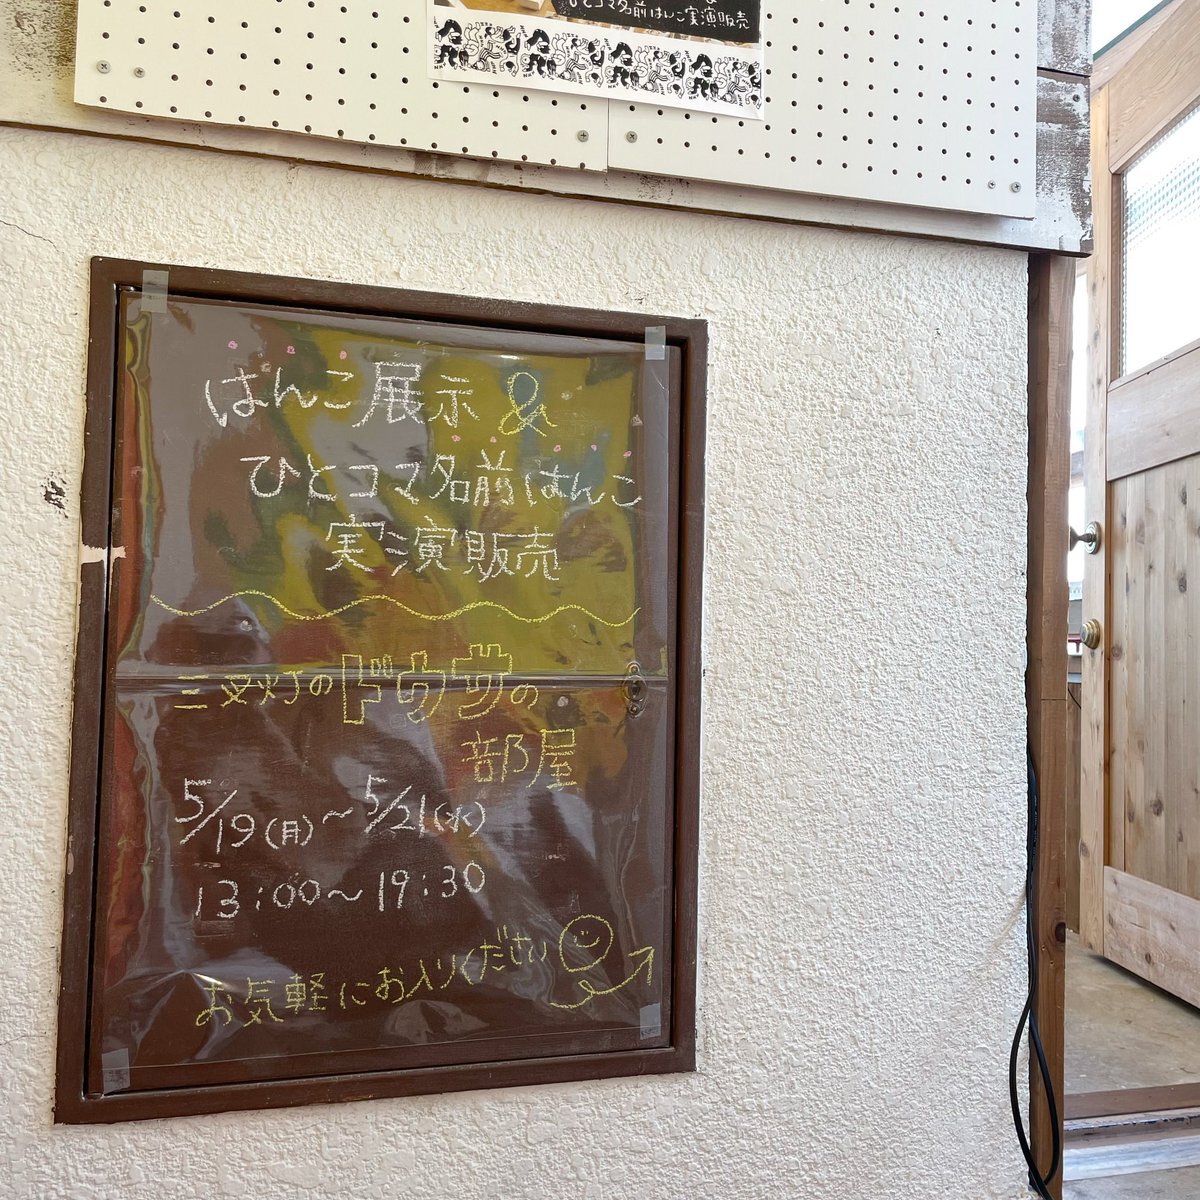 ひとコマ名前はんこ実演販売
はんこ展示 &
ひとコマ名前はんこ
実演販売
三叉灯のドウサの
部屋
5/19(月)～5/21(水)
13:00～19:30
お気軽にお入りください